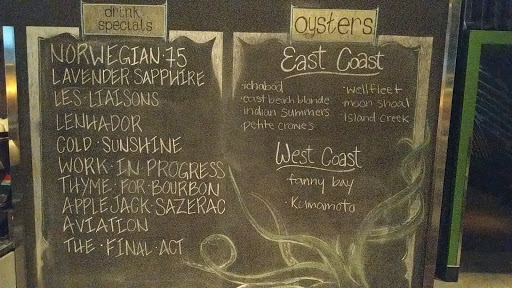 drink
specials
NORWEGIAN·75
LAVENDER SAPPHIRE
LES·LIAISONS
LENHADOR
GOLD·SUNSHINE
WORK·IN·PROGRESS
THYME·FOR·BOURBON
APPLEJACK·SAZERAC
AVIATION
THE·FINAL·ACT
oysters
East Coast
·ichabod
·east beach blonde
indian summers
·petite crowe's
·wellfleet
·moon shoal
·Island Creek
West Coast
fanny bay
·Kumamoto